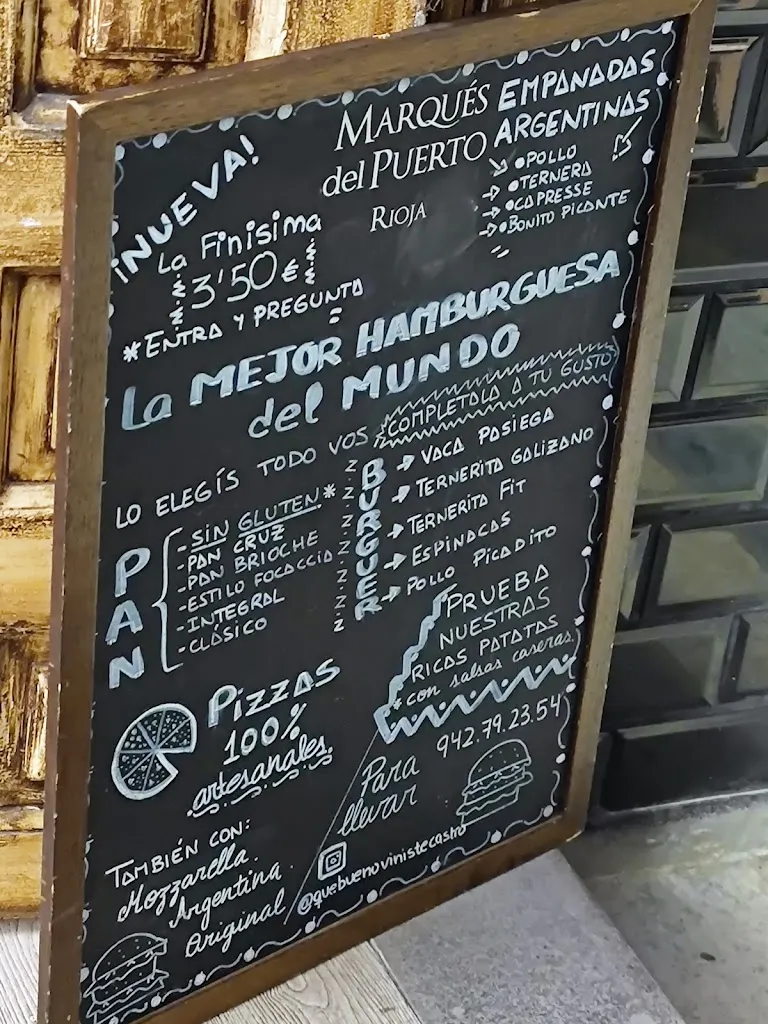 ¡NUEVA!
La Finisima
3'50 €
*ENTRA Y PREGUNTA
MARQUÉS
del PUERTO
RIOJA
EMPANADAS
ARGENTINAS
POLLO
TERNERA
CAPRESSE
BONITO PICANTE
La MEJOR HAMBURGUESA
del MUNDO
LO ELEGÍS TODO VOS
COMPLETALA A TU GUSTO
PAN
- SIN GLUTEN*
- PAN CRUZ
- PAN BRIOCHE
- ESTILO FOCACCIA
- INTEGRAL
- CLÁSICO
BURGUER
→ VACA PASIEGA
→ TERNERITA GALIZANO
→ TERNERITA FIT
→ ESPINACAS
→ POLLO PICADITO
PRUEBA
NUESTRAS
RICAS PATATAS
*con salsas caseras
Pizzas
100%
artesanales
TAMBIÉN CON:
Mozzarella
Argentina
Original
942.79.23.54
Para
llevar
@quebuenovinistecastro